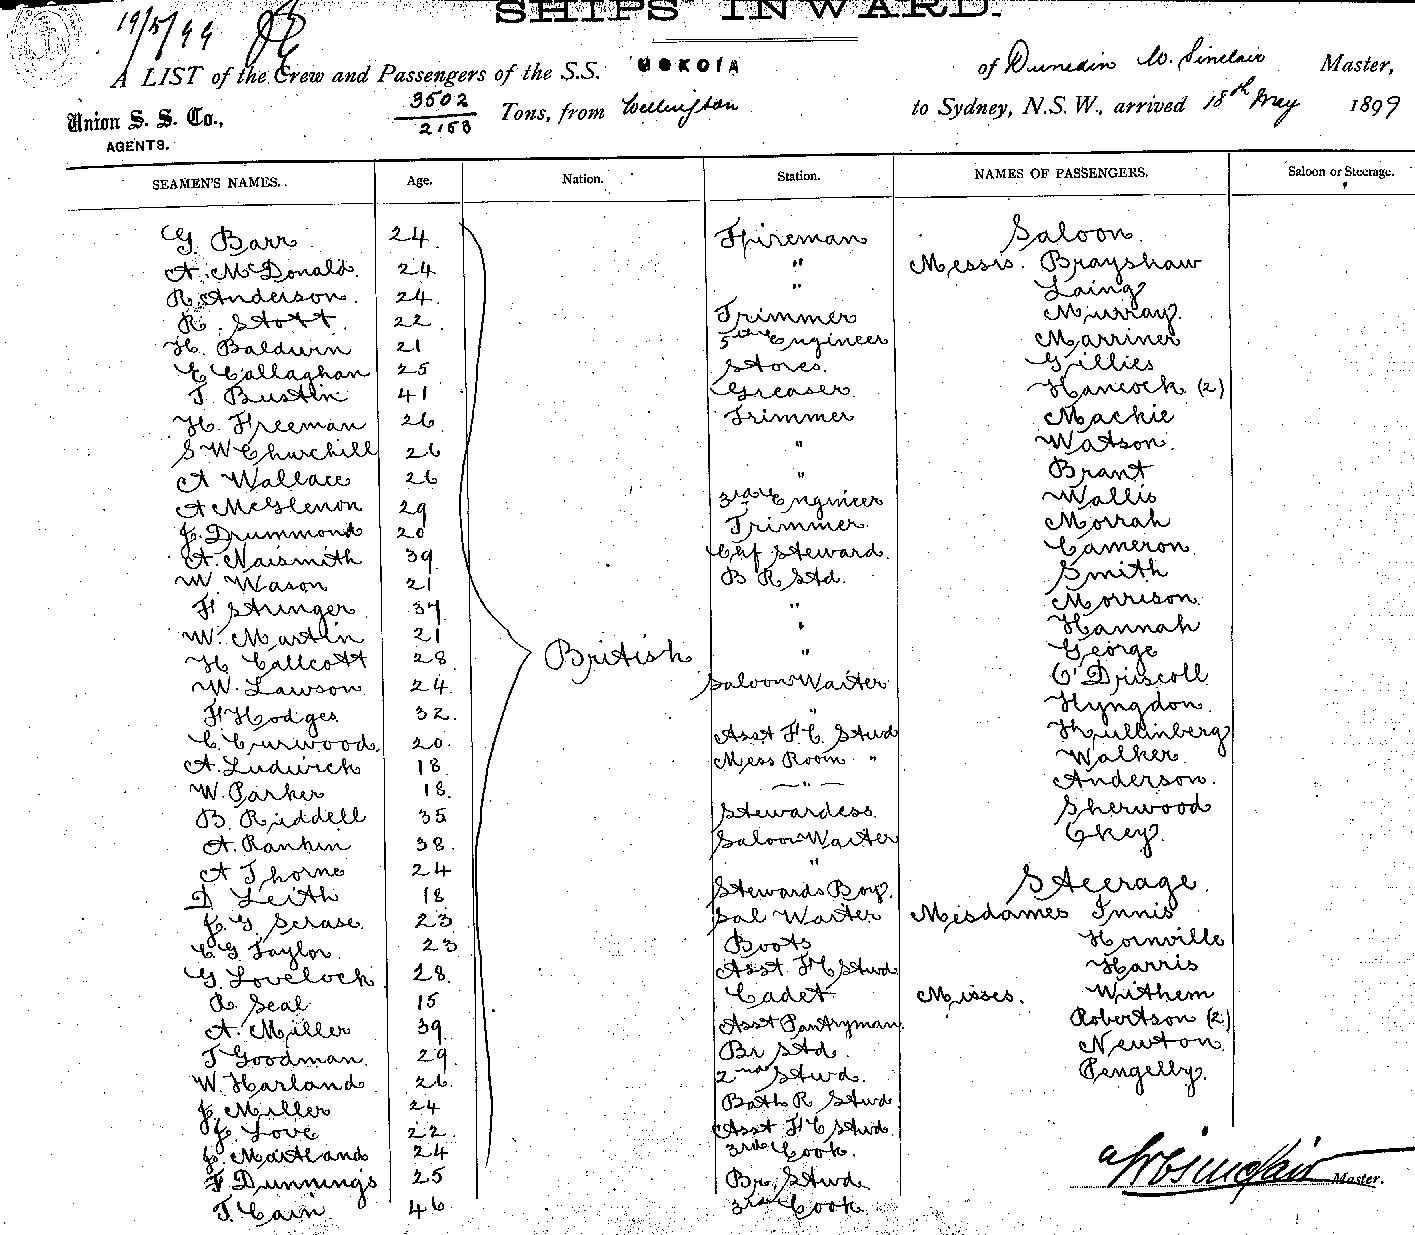 SHIPS INWARD.
19/5/99
A LIST of the Crew and Passengers of the S.S. MOKOIA of Dunedin W. Sinclair Master,
Union S. S. Co., 3502 / 2153 Tons, from Wellington to Sydney, N.S.W., arrived 18th May 1899
AGENTS.
SEAMEN'S NAMES. Age. Nation. Station. NAMES OF PASSENGERS. Saloon or Steerage.
G. Barr 24 Fireman Saloon
A. McDonald 24 " Messrs. Brayshaw
R. Anderson 24 " Laing
R. Stott 22 Trimmer Murray
H. Baldwin 21 5th Engineer Marriner
E Callaghan 25 Stores Gillies
T. Bustin 41 Greaser Hancock (2)
H. Freeman 26 Trimmer Mackie
S W Churchill 26 " Watson
A Wallace 26 " Brant
A McGlenon 29 3rd Engineer Wallis
J. Drummond 20 Trimmer Morrah
A. Naismith 39 Chf Steward Cameron
W. Wason 21 B R Std. Smith
F Stringer 37 " Morrison
W. Martin 21 " Hannah
H Callcott 28 British " George
W. Lawson 24 Saloon Waiter O'Driscoll
F Hodges 32 " Hyngdon
C. Curwood 20 Asst F.C. Stwd Kullinberg
A. Ludwick 18 Mess Room " Walker
W. Parker 18 " Anderson
B. Riddell 35 Stewardess Sherwood
A. Rankin 38 Saloon Waiter Okey
A Thorne 24 " Steerage
D Leith 18 Stewards Boy
J. G. Scrase 23 Sal Waiter Mesdames Innis
C G Taylor 23 Boots Hornville
G. Lovelock 28 Asst F C Stwd Harris
R Seal 15 Cadet Misses. Withem
A. Miller 39 Asst Pantryman Robertson (2)
T Goodman 29 Br Std. Newton
W. Harland 26 2nd Stwd. Pengelly
J. Miller 24 Bath R Stwd
J. Love 22 Asst F C Stwd.
J. Maitland 24 3rd Cook.
F Dunnings 25 Br. Stwd
T. Cain 46 3rd Cook
W Sinclair Master.